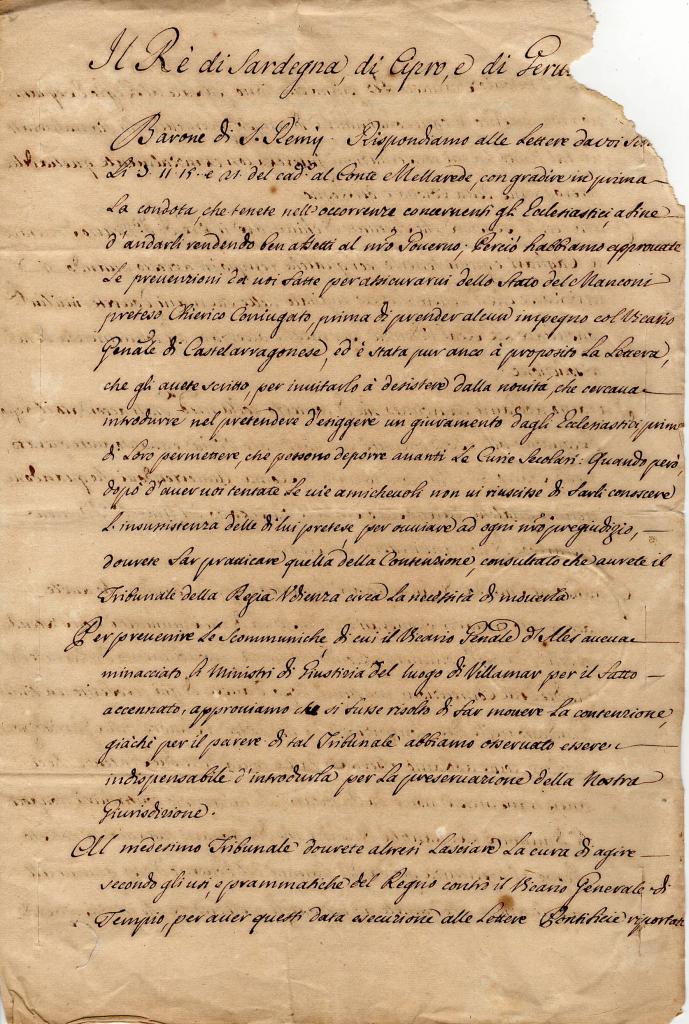 Il Rè di Sardegna, di Cipro, e di Geru
Barone di S. Remy. Rispondiamo alle Lettere da voi
Li 11. e 21. del cad.e al Conte Mellarede, con gradire in prima
La condota, che tenete nell'occorrenze concernenti gli Ecclesiastici, a fine
d'andarli rendendo ben affetti al nro Governo; Perciò habbiamo approvate
Le prevenzioni da voi fatte per assicurarvi dello Stato del Manconi
preteso Chierico Coniugato, prima di prender alcun impegno col Vicario
Genãle di Castelarragonese, ed è stata pur anco à proposito La Lettera,
che gli avete scritto, per invitarlo à desistere dalla novità, che cercava
introdurre nel pretendere d'esiggere un giuramento dagli Ecclesiastici prima
di Loro permettere, che possono deporre avanti Le Curie Secolari: Quando però,
dopo d'aver voi tentate Le vie amichevoli non vi riuscisse di farli conoscere
L'insussistenza delle di lui pretese, per ovviare ad ogni nrõ pregiudizio,
dovrete far pratticare quella della Contenzione, consultato che avrete il
Tribunale della Regia Udienza circa La necessità di muoverla
Per prevenire Le Scommuniche, di cui il Vicario Genãle d'Ales aveva
minacciato li Ministri di Giustizia del luogo di Villamar per il fatto
accennato, approviamo che si fusse risolto di far movere La contenzione,
giàché per il parere di tal Tribunale abbiamo osservato essere
indispensabile d'introdurla per La preservazione della Nostra
Giurisdizione.
Al medesimo Tribunale dovrete altresì Lasciare La cura di agire
secondo gli usi, e prammatiche del Regno contro il Vicario Generale di
Tempio, per aver questi data esecuzione alle Lettere Pontificie riportate